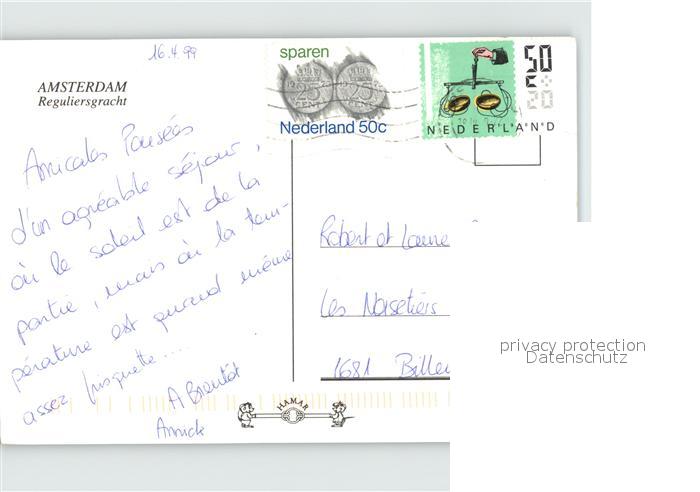 16.4.99
sparen
Nederland 50c
50
20
NEDERLAND
AMSTERDAM
Reguliersgracht
Amicales Pensées
d'un agréable séjour,
où le soleil est de la
partie, mais où la tem-
pérature est quand même
assez frisquette...
A Bientôt
Annick
Robert et
Les Noisetiers
1681 Billen
HAMAR
privacy protection
Datenschutz